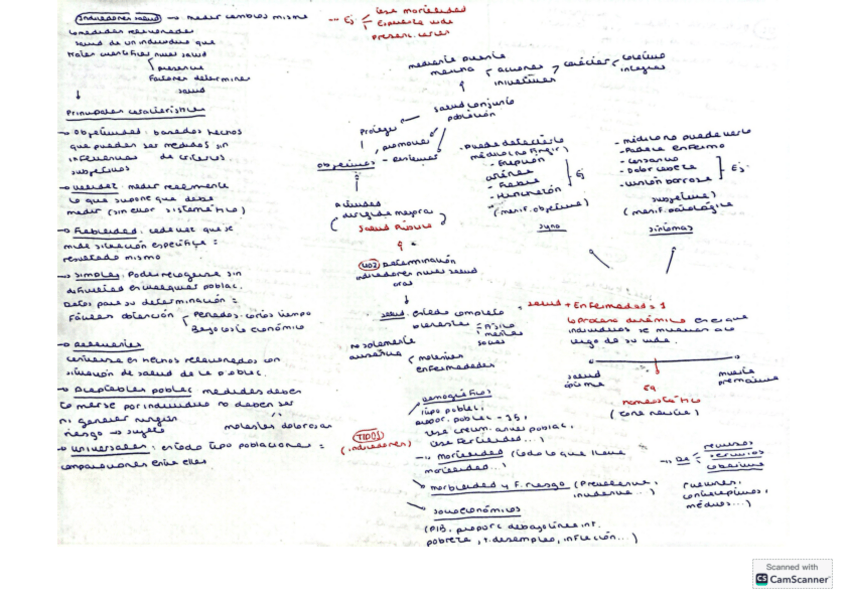 Indicadores salud → medir cambios mismo
medidas relacionadas
salud de un individuo que
tratan cuantificar nivel salud
presencia
Factores determinan
salud
Principales características
→ Objetividad: basados hechos
que puedan ser medidos sin
influencias de criterios
subjetivos
→ Validez: medir realmente
lo que supone que debe
medir (sin error sistemático)
→ Fiabilidad: cada vez que se
mide situación específica =
resultado mismo
→ Simples: Poder recogerse sin
dificultad en cualquier poblac.
Datos para su determinación =
Fáciles obtención
Periodos cortos tiempo
Bajo costo económico
→ Relevantes
centrarse en hechos relacionados con
situación de salud de la poblac.
→ Aceptables poblac: medidas deben
tomarse por individuo no deben ser
ni generar ningún
riesgo → sujeto
molestas dolorosas
→ Universales: en todo tipo poblaciones =
comparaciones entre ellas
Ej
tasa mortalidad
Esperanza vida
Presenc. cáncer
mediante puesta
marcha
acciones
iniciativas
carácter
colectivo
integral
salud conjunto
población
Proteger
promover
restaurar
Objetivos
Actividades
dirigida mejora
Salud Pública
U02 Determinación
indicadores nivel salud
oral
salud: estado completo
bienestar
físico
mental
social
no solamente
ausencia
molestias
enfermedades
- Puede detectarlo
médico (no fingir)
- Erupción
cutánea
- Fiebre
- Hinchazón
Ej
(manif. objetiva)
signo
- médico no puede verlo
- Padece enfermo
- cansancio
- Dolor cabeza
- visión borrosa
Ej
subjetiva)
(manif. patológica
síntomas
salud + Enfermedad = 1
Proceso dinámico en el que
individuos se mueven a lo
largo de su vida.
salud
óptima
Eq
homeostático
(zona neutra)
muerte
prematura
TIPOS
(indicadores)
Demográficos
(tipo poblac,
propor. poblac -15,
tasa crecim. anual poblac,
tasa fecundidad...)
→ mortalidad (todo lo que lleve
mortalidad...)
morbilidad y F. riesgo (Prevalencia,
incidencia...)
socioeconómicos
(PIB, proporc debajo línea int.
pobreza, t. desempleo, inflación...)
→ De
recursos
servicios
cobertura
médicos...)
Scanned with
CS CamScanner